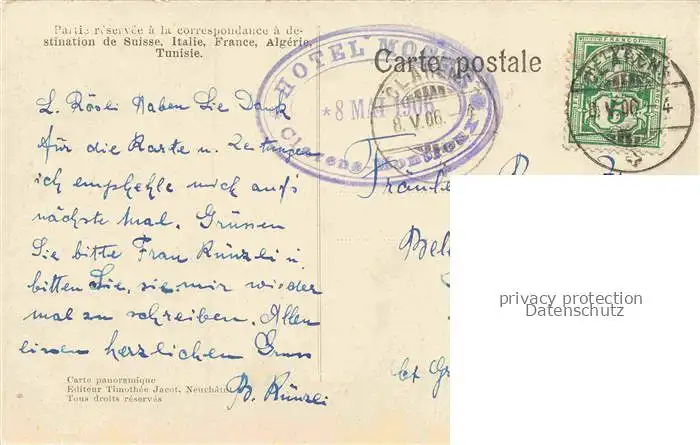 Partie réservée à la correspondance à de-
stination de Suisse, Italie, France, Algérie,
Tunisie.
Carte postale
HOTEL
*8 MAI 1906
Clarens-Montreux
CLARENS
8.V.06.
FRANCO
8.V.06.-4
5
L. Rösli Haben Sie Dank
für die Karte u. Zeitungen
ich empfehle mich auf's
nächste Mal. Grüssen
Sie bitte Frau Künzli u.
bitten Sie, sie mir wieder
mal zu schreiben. Allen
einen herzlichen Gruss
B. Künzli
Fräulein
privacy protection
Datenschutz
Carte panoramique
Editeur Timothée Jacot, Neuchâtel
Tous droits réservés